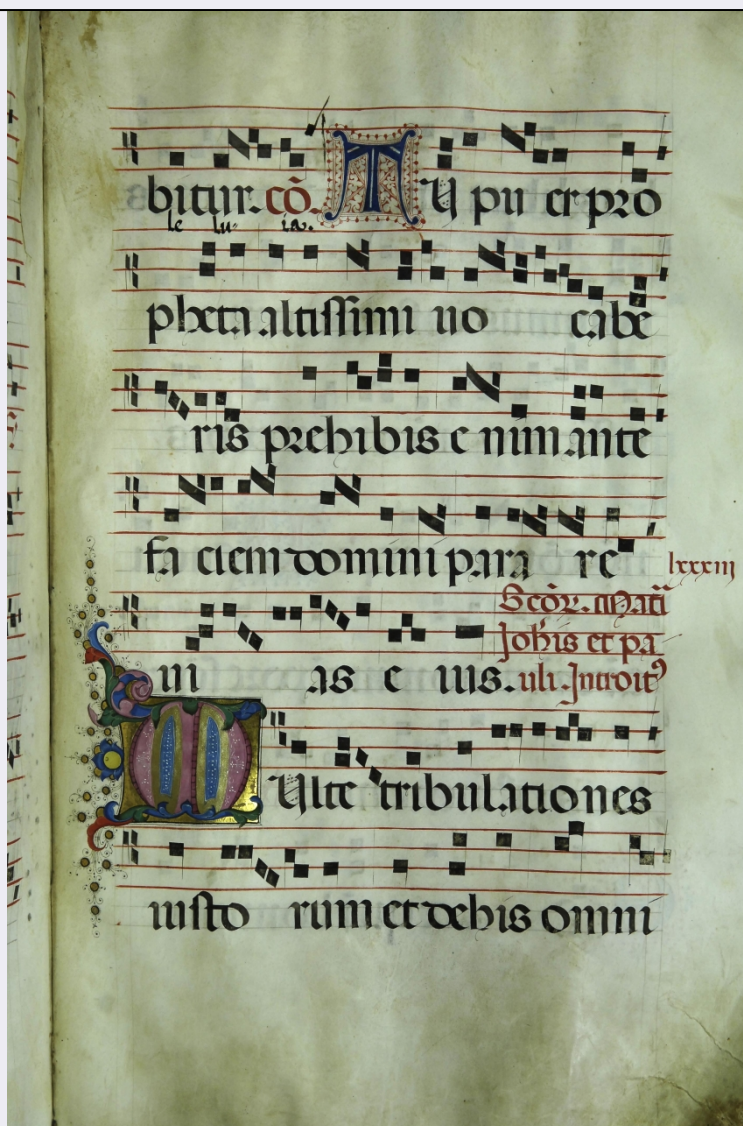 bitur. cō. TU pu er pro
le lu ia.
pheta altissimi uo cabe
ris prehibis e nim ante
fa ciem domini para re
lxxxiii
Scōr. Mar̄
Johis et pa
ui as e ius. uli. Introit⁹
MUlte tribulationes
iusto rum et de his omni